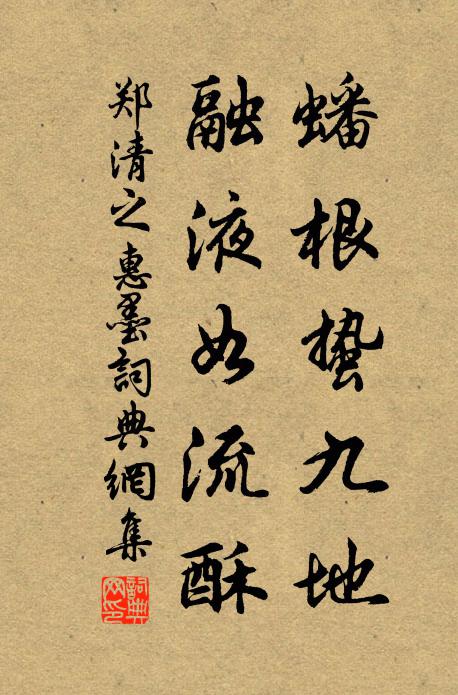 蟠根蛰九地
融液如流酥
郑清之惠墨詞典網集
詞典网印